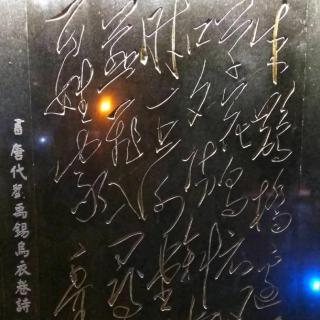 朱雀橋邊
草花烏衣
口夕陽斜
時王謝堂
燕飛入尋
百姓家
書唐代劉禹錫烏衣巷詩